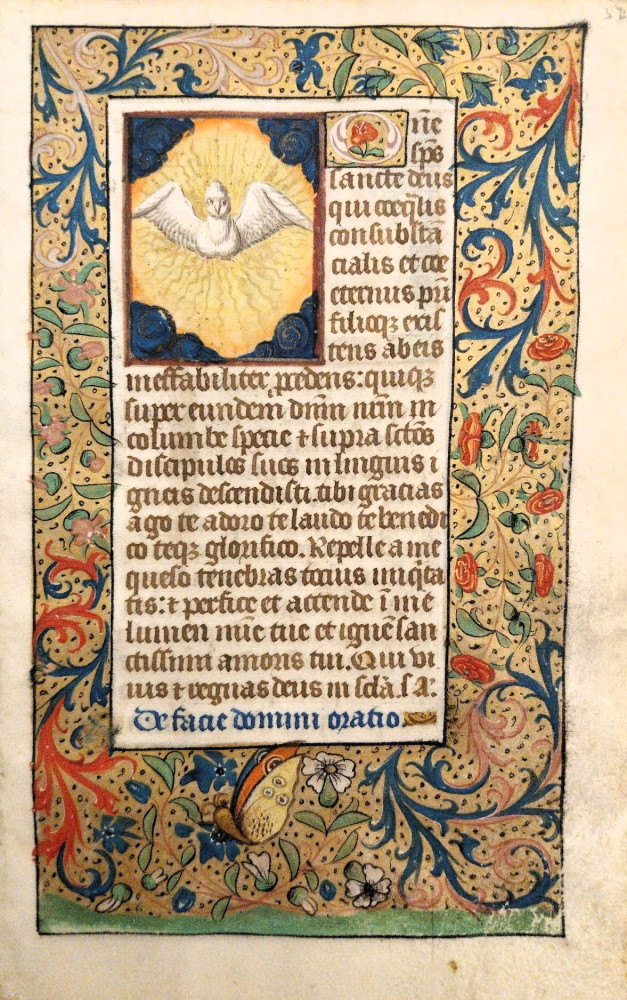 Oñe
sp̄s
sancte deus
qui coeq̄lis
consubstā
cialis et coe
eternus pr̄i
filioq₃ exis
tens ab eis
ineffabiliter p̱cedens : quiq₃
super eundem dn̄m nr̄m in
columbe specie ⁊ supra sc̄tos
discipulos suos in linguis i
gneis descendisti. tibi gracias
ago te adoro te laudo te benedi
co teq₃ glorifico. Repelle a me
queso tenebras tocius iniq̄ta
tis : ⁊ perfice et accende ī me
lumen mīe tue et ignē san
ctissimi amoris tui. Qui vi
uis ⁊ regnas deus in sc̄la. s A :
De facie domini oratio.